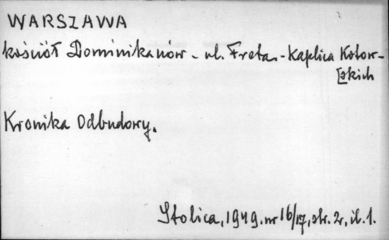 WARSZAWA
kościół Dominikanów - ul. Freta - Kaplica Kotow-
[skich
Kronika Odbudowy.
Stolica, 1949. nr 16/17, str. 2, il. 1.